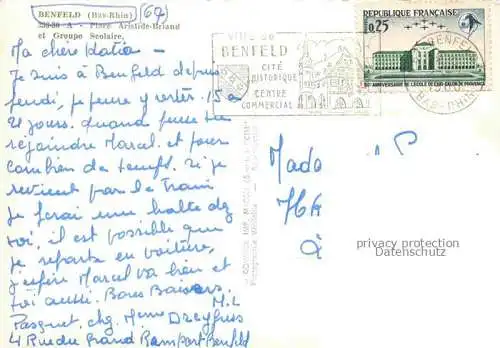 BENFELD (Bas-Rhin) (67)
Place Aristide-Briand
et Groupe Scolaire,
Ma chère Katia -
Je suis à Benfeld depuis
jeudi, je pense y rester 15 a
21 jours. Quand penses tu
rejoindre Marcel. et pour
combien de temps. Si je
revient par le train
je ferai une halte chez
toi, il est possible que
je reparte en voiture,
j'espère Marcel va bien et
toi aussi. Bons Baisers.
M.L
Pasquet, chez Mme Dreyfuss
4 Rue du Grand Rempart Benfeld
VILLE de
BENFELD
CITÉ
HISTORIQUE
CENTRE
COMMERCIAL
REPUBLIQUE FRANÇAISE
0,25
ANNIVERSAIRE DE L'ECOLE DE L'AIR-SALON DE PROVENCE
BENFELD
BAS-RHIN
à
privacy protection
Datenschutz